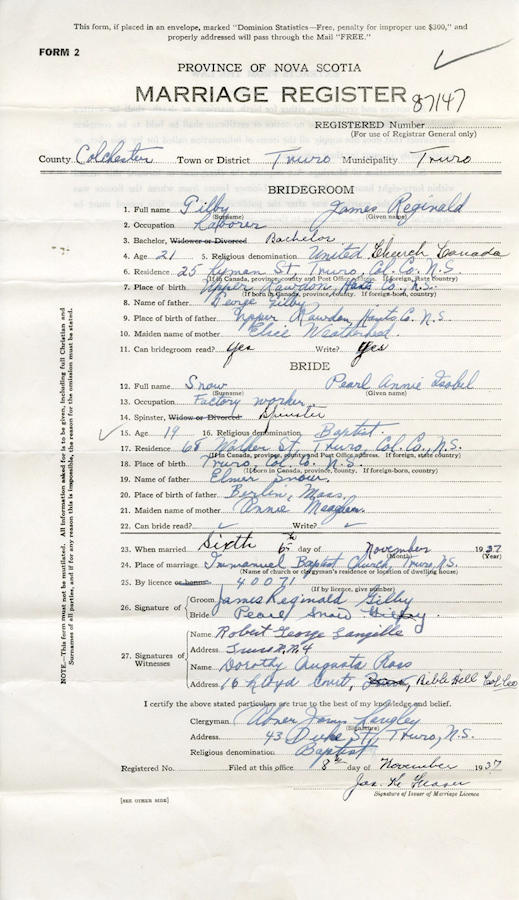 This form, if placed in an envelope, marked "Dominion Statistics—Free, penalty for improper use $300," and
properly addressed will pass through the Mail "FREE."
FORM 2
PROVINCE OF NOVA SCOTIA
MARRIAGE REGISTER 87147
REGISTERED Number
(For use of Registrar General only)
County Colchester Town or District Truro Municipality Truro
BRIDEGROOM
1. Full name Gilby James Reginald
(Surname) (Given name)
2. Occupation Laborer
3. Bachelor, Widower or Divorced Bachelor
4. Age 21 5. Religious denomination United Church Canada
6. Residence 25 Lyman St., Truro, Col. Co. N.S.
(If in Canada, province, county and Post Office address. If foreign, State country)
7. Place of birth Upper Rawdon, Hants Co., N.S.
(If born in Canada, province, county. If foreign-born, country)
8. Name of father George Gilby
9. Place of birth of father Upper Rawdon, Hants Co. N.S.
10. Maiden name of mother Elsie Weatherhead
11. Can bridegroom read? Yes Write? Yes
BRIDE
12. Full name Snow Pearl Annie Isobel
(Surname) (Given name)
13. Occupation Factory worker
14. Spinster, Widow or Divorced Spinster
15. Age 19 16. Religious denomination Baptist
17. Residence 68 Walker St. Truro, Col. Co., N.S.
(If in Canada, province, county and Post Office address. If foreign, state country)
18. Place of birth Truro, Col. Co. N.S.
(If born in Canada, province, county. If foreign-born, country)
19. Name of father Elmer Snow
20. Place of birth of father Berlin, Mass.
21. Maiden name of mother Annie Meagher
22. Can bride read? ✓ Write? ✓
23. When married Sixth 6th day of November 1937
(Month) (Year)
24. Place of marriage Immanuel Baptist Church, Truro, N.S.
(Name of church or clergyman's residence or location of dwelling house)
25. By licence or banns 40071
(If by licence, give number)
26. Signature of
Groom James Reginald Gilby
Bride Pearl Snow Gilby
27. Signatures of Witnesses
Name Robert George Langille
Address Truro R.R.4
Name Dorothy Augusta Ross
Address 16 Court, Bible Hill Col. Co
I certify the above stated particulars are true to the best of my knowledge and belief.
Clergyman Abner James Langley
(Signature)
Address 43 Duke St., Truro, N.S.
Religious denomination Baptist
Registered No. Filed at this office 8th day of November 1937
Jas.
Signature of Issuer of Marriage Licence
[SEE OTHER SIDE]
NOTE.—This form must not be mutilated. All information asked for is to be given, including full Christian and
Surnames of all parties, and if for any reason this is impossible, the reason for the omission must be stated.